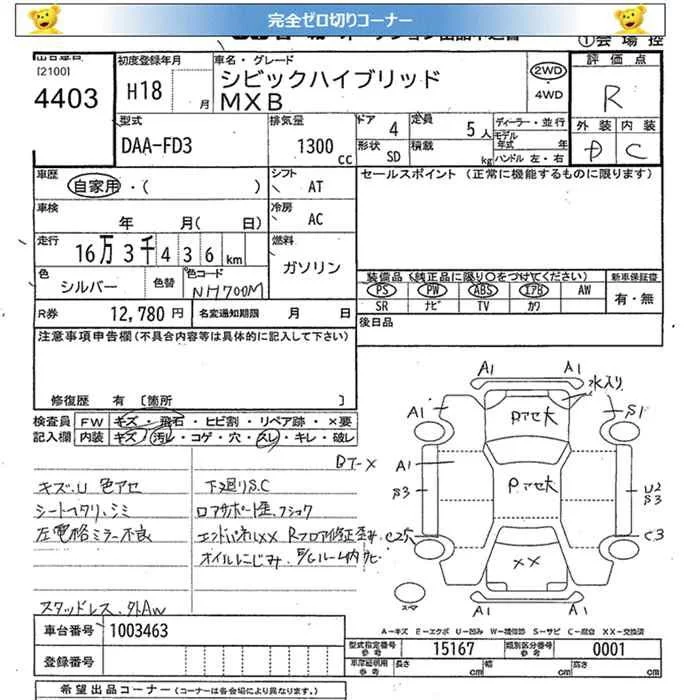 完全ゼロ切りコーナー
①会場控
[2100]
4403
初度登録年月
H18
月
車名・グレード
シビックハイブリッド
MXB
2WD
・4WD
評価点
R
外装 内装
D C
型式
DAA-FD3
排気量
1300
cc
ドア 4
定員 5人
形状 SD
積載 kg
ディーラー・並行
モデル年式 年
ハンドル 左・右
車歴
自家用・( )
シフト
AT
車検
年 月( 日)
冷房
AC
走行
16万3千436km
燃料
ガソリン
色
シルバー
色替
色コード
NH700M
R券 12,780円
名変通知期限 月 日
セールスポイント (正常に機能するものに限ります)
装備品(純正品に限り○をつけてください)
新車保証書
PS PW ABS エアB AW
SR ナビ TV カワ
有・無
後日品
注意事項申告欄(不具合内容等は具体的に記入して下さい)
修復歴 有 [箇所 ]
検査員記入欄
FW キズ・飛石・ヒビ割・リペア跡・×要
内装 キズ・汚レ・コゲ・穴・スレ・キレ・破レ
BT-X
キズ.U 色アセ
シートヘタリ、シミ
左電格ミラー不良
スタッドレス.外AW
下廻りS.C
コアサポート歪.フショク
エンドパネルXX Rフロア修正歪み
オイルにじみ
C25
A1 A1
水入り
A1 S1
Pアセ大
A1
S3
Pアセ大
U2
S3
C3
××
スペア
A1 A1
A-キズ E-エクボ U-凹み W-補修跡 S-サビ C-腐食 XX-交換済
車台番号 1003463
登録番号
型式指定番号 参考 15167
類別区分番号 参考 0001
車庫証明用 参考
長さ cm
幅 cm
高さ cm
希望出品コーナー (コーナーは各会場により異なります。)